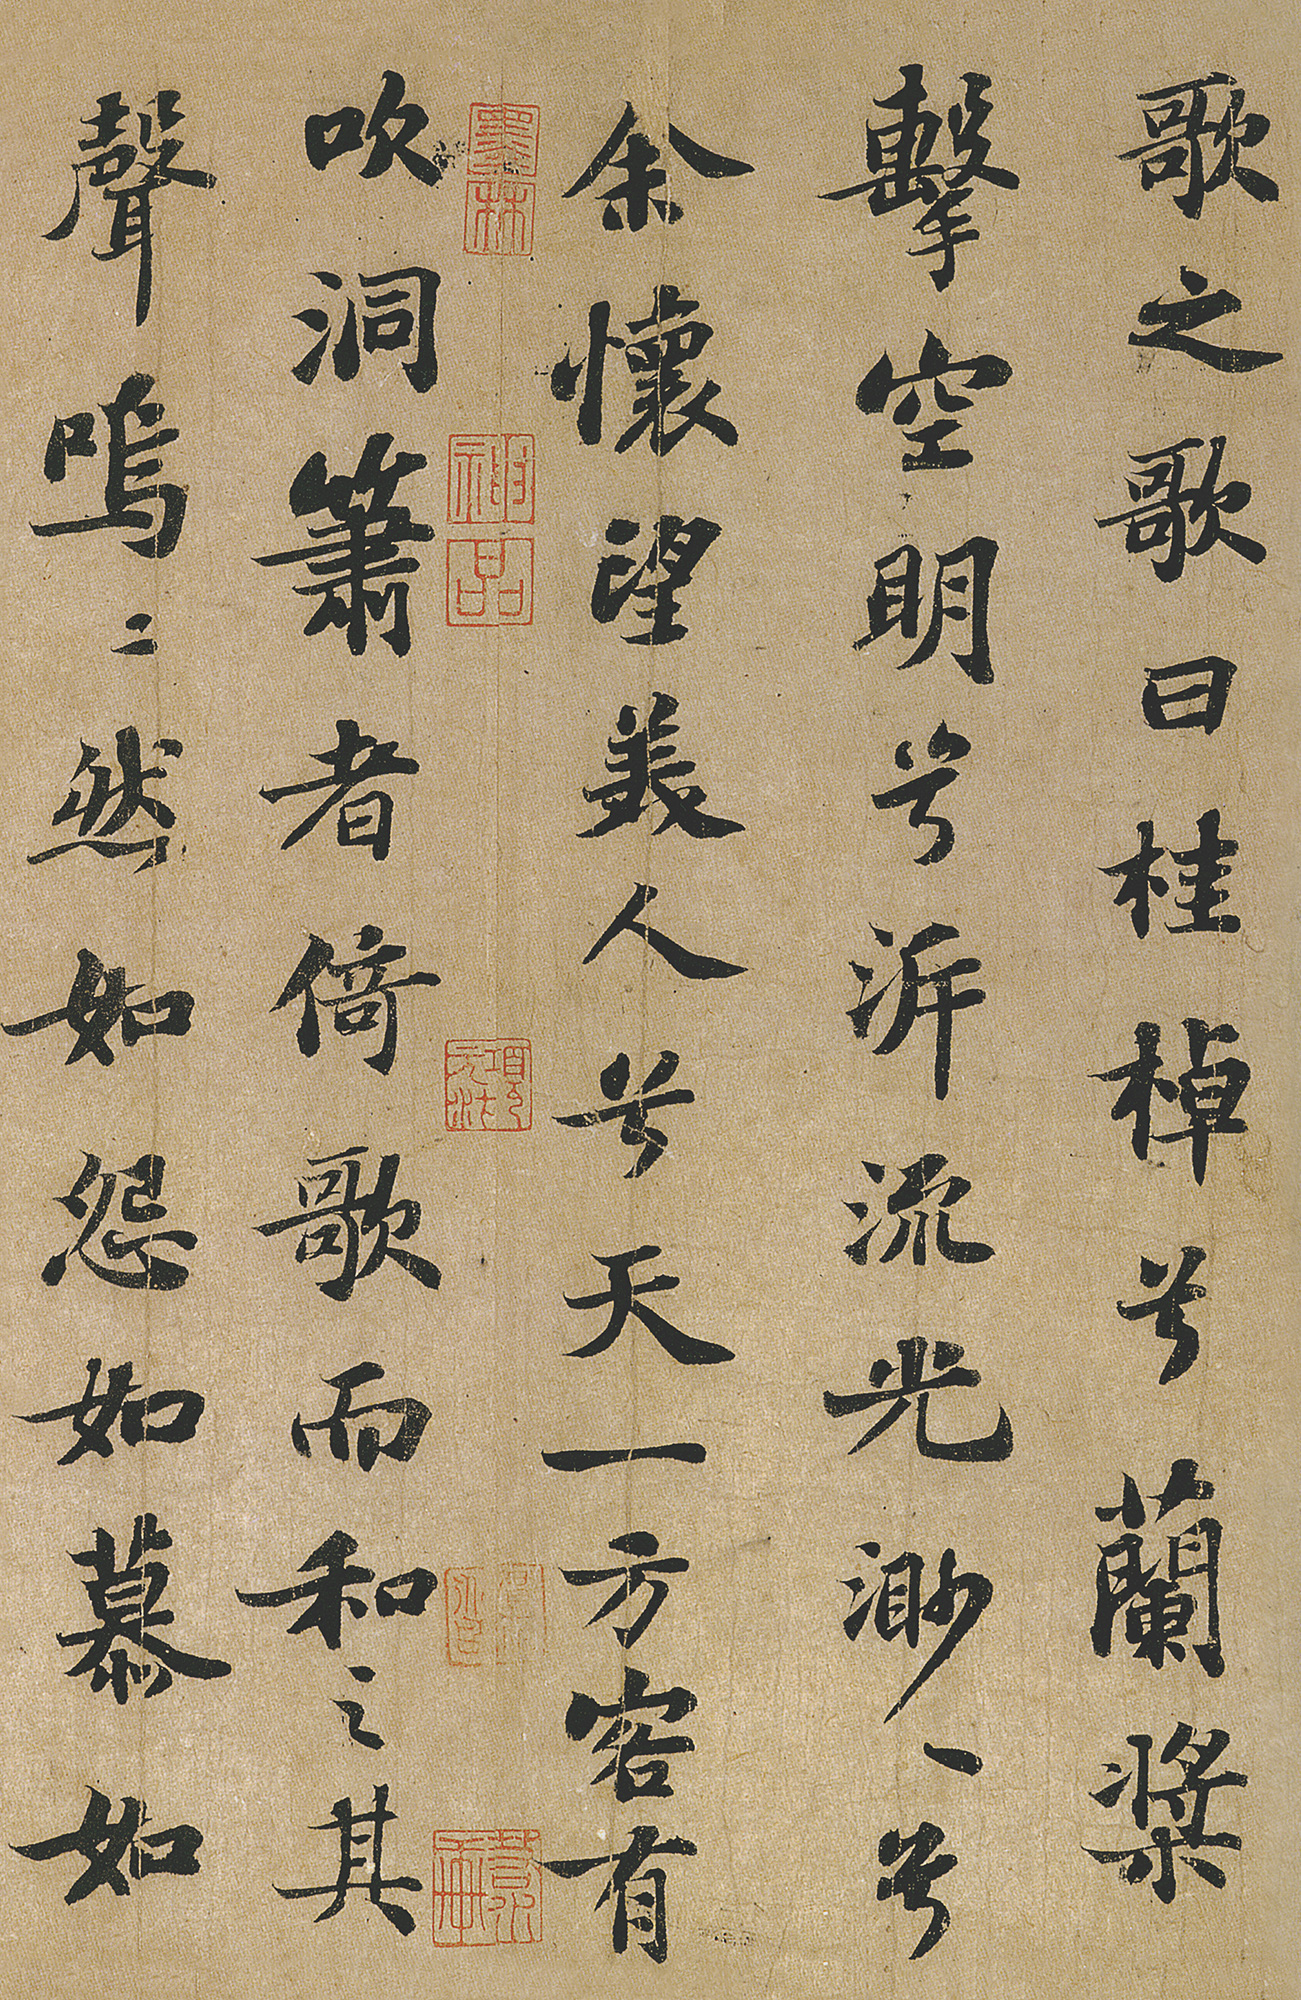 歌之歌曰桂棹兮蘭槳
擊空明兮泝流光渺〻兮
余懷望美人兮天一方客有
吹洞簫者倚歌而和之其
聲嗚〻然如怨如慕如
墨林
神品
項元汴